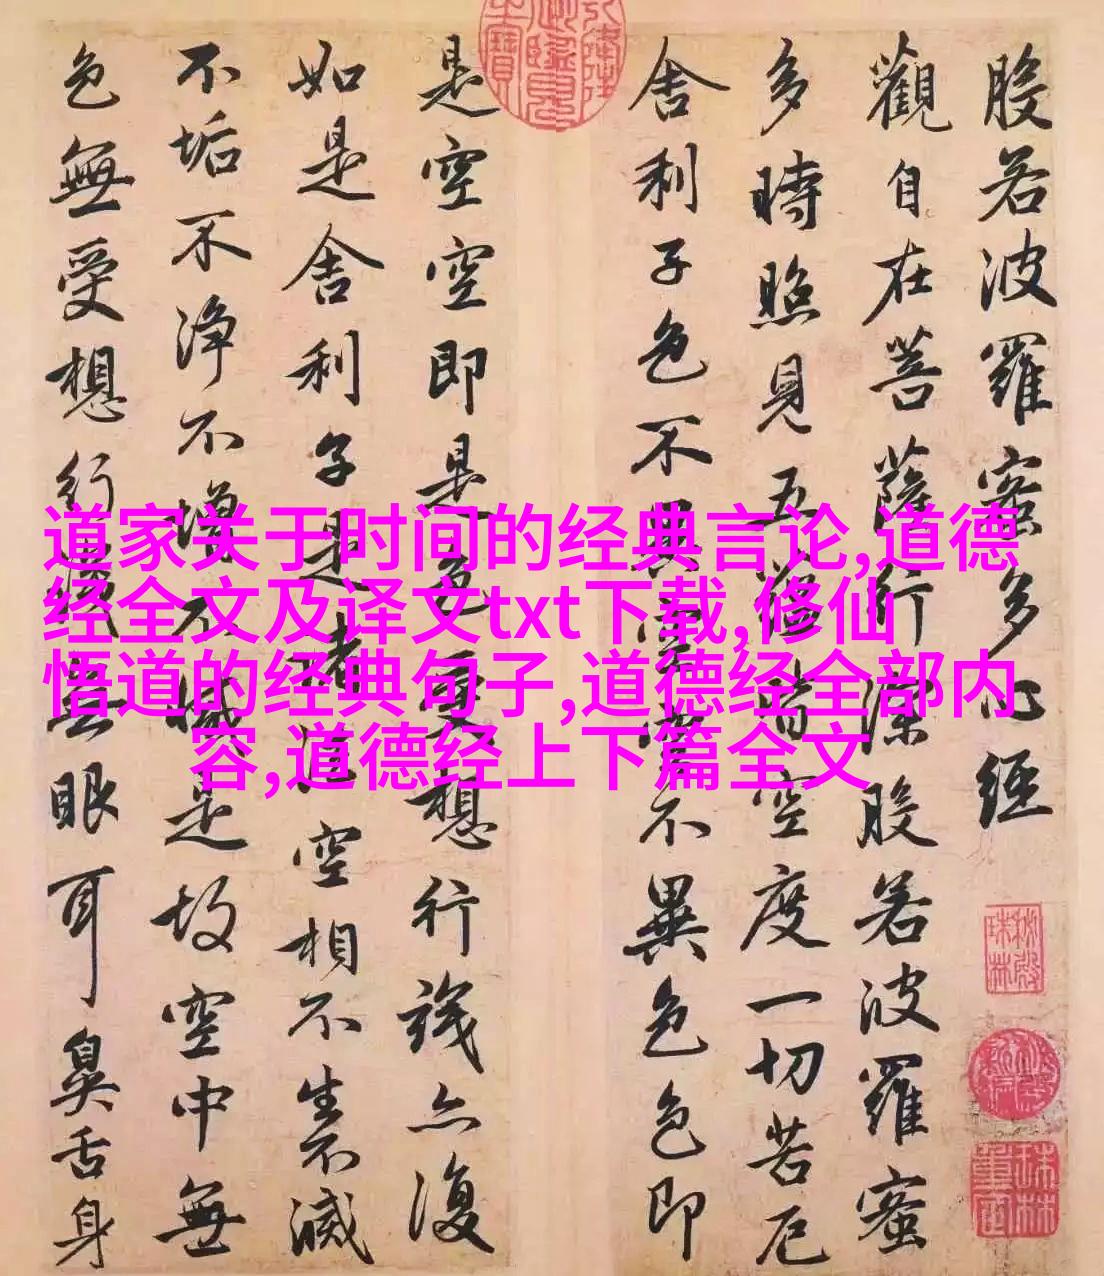 般若波羅蜜多心經
觀自在菩薩行深般若波羅蜜
多時照見五蘊皆空度一切苦厄
舍利子色不異空空不異色色即
是空空即是色受想行識亦復
如是舍利子是諸法空相不生不滅
不垢不净不增不減是故空中無
色無受想行識無眼耳鼻舌身
道家关于时间的经典言论,道德
经全文及译文txt下载,修仙
悟道的经典句子,道德经全部内
容,道德经上下篇全文